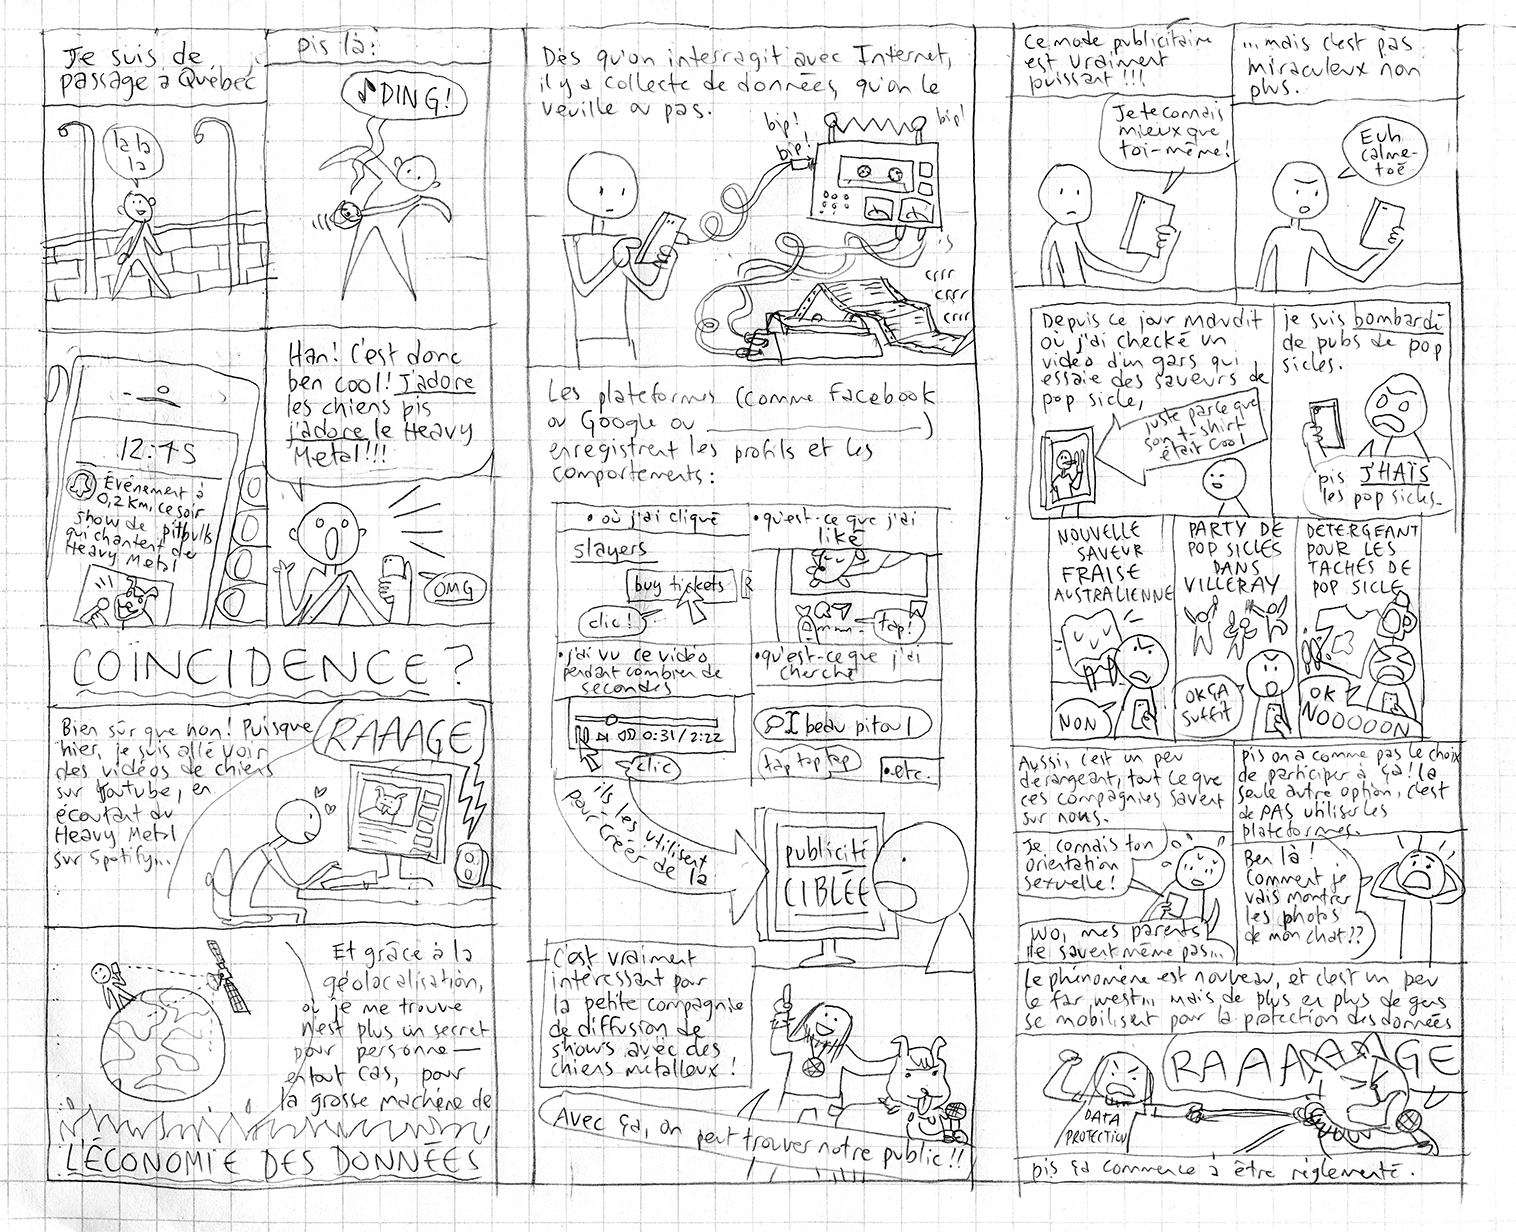 Je suis de
passage à Québec
la la
la
pis là:
♪DING!
12:45
Événement à
0,2 km, ce soir
show de pitbulls
qui chantent du
Heavy Metal
Han! C'est donc
ben cool! J'adore
les chiens pis
j'adore le Heavy
Metal!!!
OMG
COÏNCIDENCE?
Bien sûr que non! Puisque
hier, je suis allé voir
des vidéos de chiens
sur Youtube, en
écoutant du
Heavy Metal
sur Spotify...
RAAAGE
Et grâce à la
géolocalisation,
où je me trouve
n'est plus un secret
pour personne—
en tout cas, pour
la grosse machine de
L'ÉCONOMIE DES DONNÉES
Dès qu'on interragit avec Internet,
il y a collecte de données, qu'on le
veuille ou pas.
bip!
bip!
bip!
crrr
crrr
crrr
Les plateformes (comme Facebook
ou Google ou ____________)
enregistrent les profils et les
comportements:
• où j'ai cliqué
slayers
buy tickets
clic!
• qu'est-ce que j'ai
liké
tap!
• j'ai vu ce vidéo
pendant combien de
secondes
0:31/2:22
clic
• qu'est-ce que j'ai
cherché
beau pitou
tap tap tap
• etc.
ils les utilisent
pour créer de la
publicité
CIBLÉE
C'est vraiment
intéressant pour
la petite compagnie
de diffusion de
shows avec des
chiens metalleux!
Avec ça, on peut trouver notre public!!
Ce mode publicitaire
est vraiment
puissant!!!
Je te connais
mieux que
toi-même!
...mais c'est pas
miraculeux non
plus.
Euh
calme-
toé
Depuis ce jour maudit
où j'ai checké un
vidéo d'un gars qui
essaie des saveurs de
pop sicle,
juste parce que
son t-shirt
était cool
je suis bombardé
de pubs de pop
sicles.
pis J'HAÏS
les pop sicles.
NOUVELLE
SAVEUR
FRAISE
AUSTRALIENNE
NON
PARTY DE
POP SICLES
DANS
VILLERAY
OK ÇA
SUFFIT
DÉTERGEANT
POUR LES
TACHES DE
POP SICLE
OK
NOOOOON
Aussi, c'est un peu
dérangeant, tout ce que
ces compagnies savent
sur nous.
Je connais ton
orientation
sexuelle!
Wo, mes parents
le savent même pas...
pis on a comme pas le choix
de participer à ça! la
seule autre option, c'est
de PAS utiliser les
plateformes.
Ben là!
Comment je
vais montrer
les photos
de mon chat??
Le phénomène est nouveau, et c'est un peu
le far west... mais de plus en plus de gens
se mobilisent pour la protection des données
DATA
PROTECTION
RAAAAAAGE
pis ça commence à être règlementé.